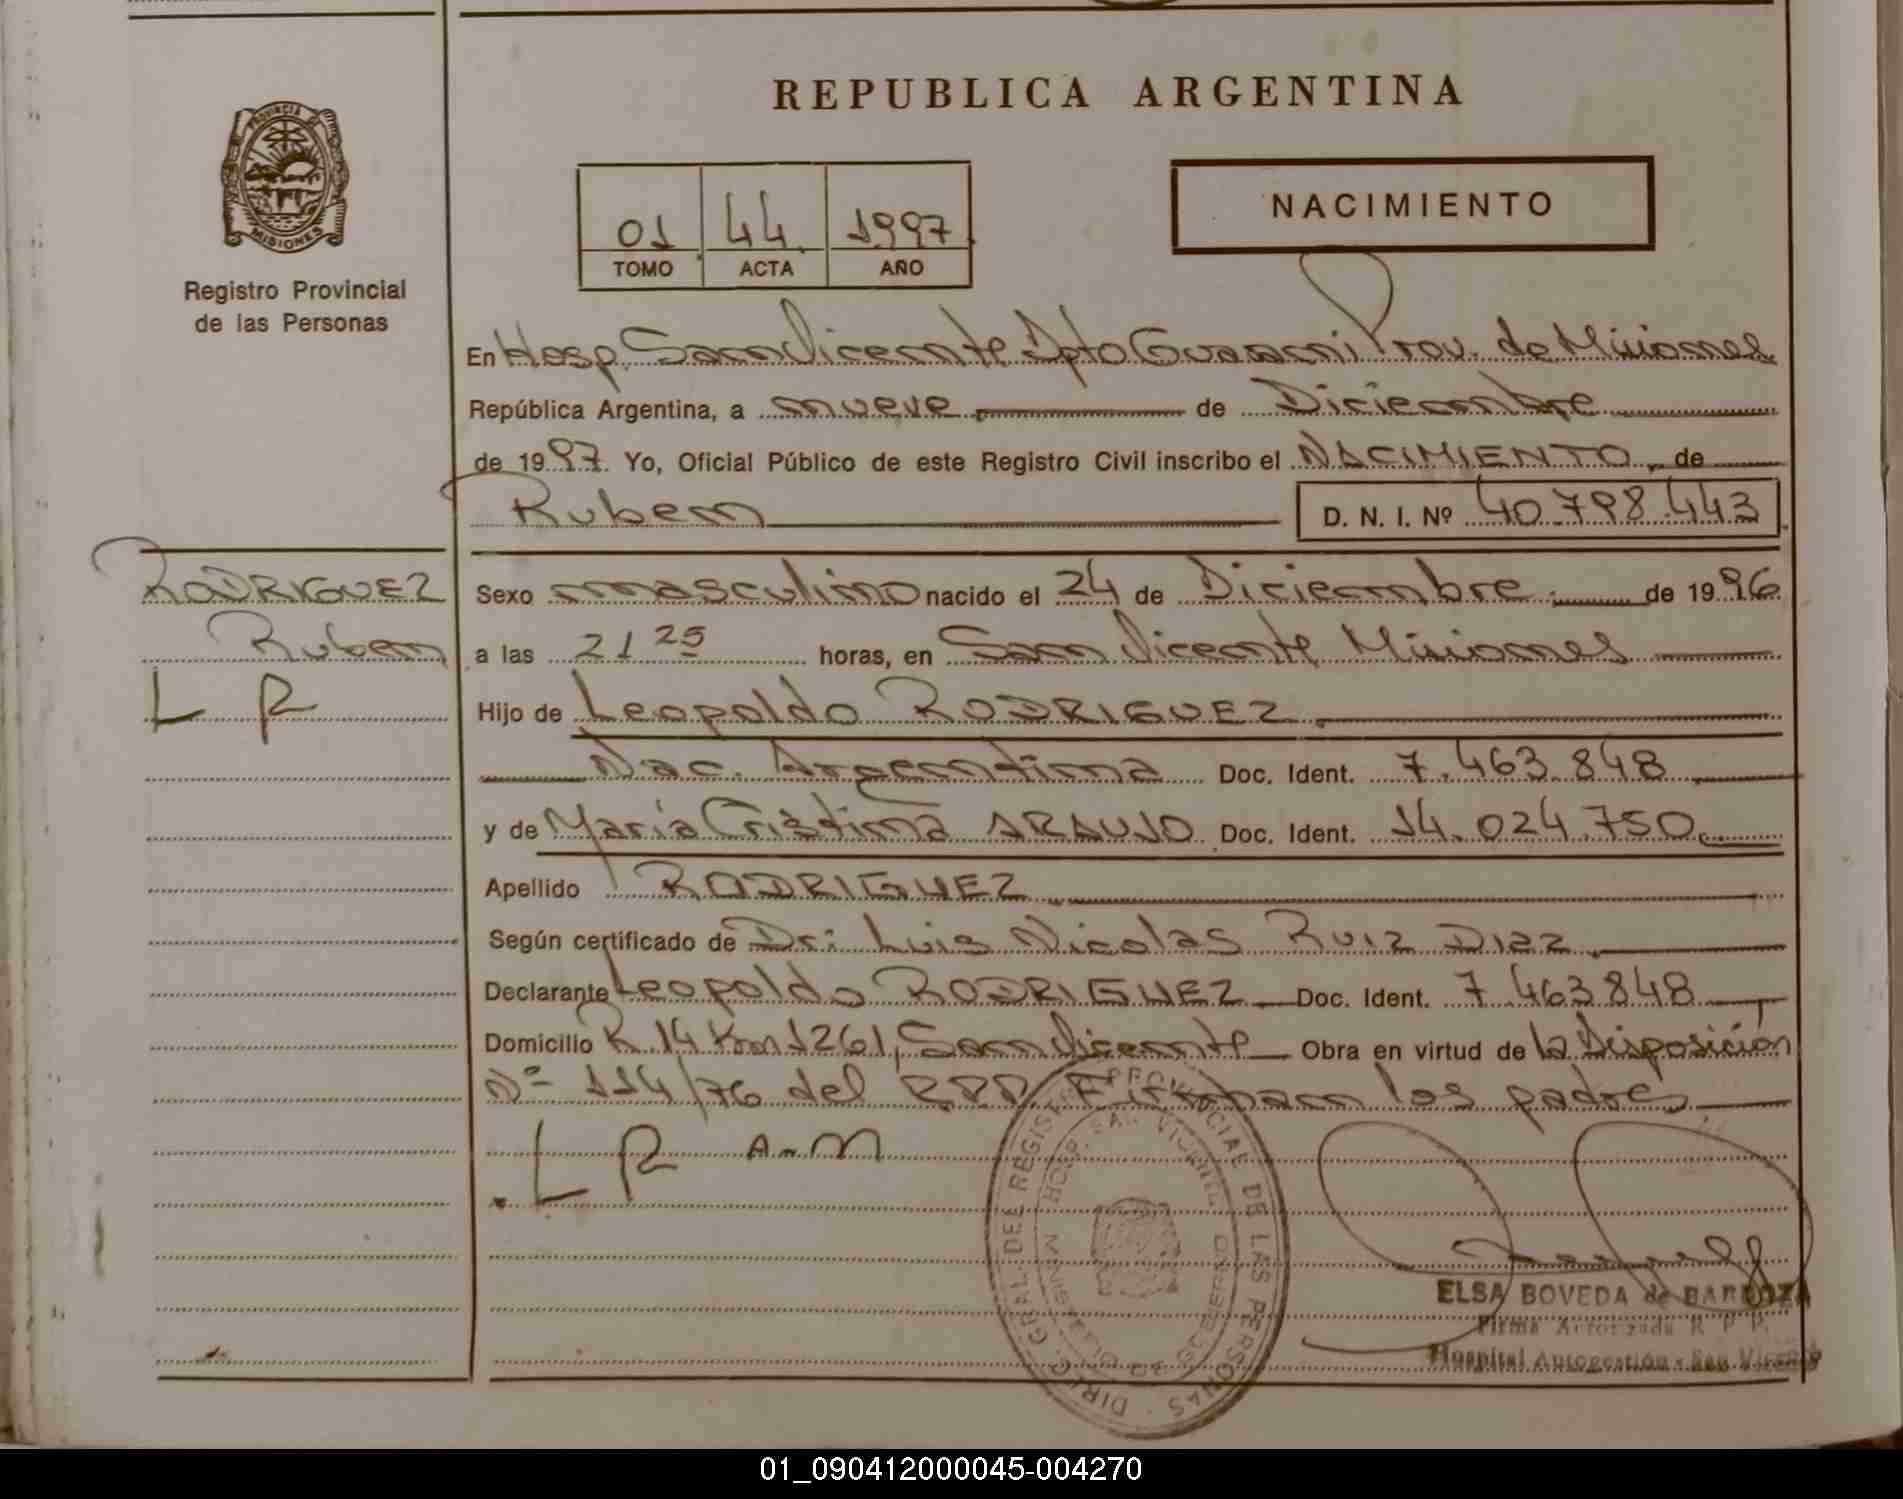 REPUBLICA ARGENTINA
PROVINCIA DE
MISIONES
Registro Provincial
de las Personas
01 44 1997
TOMO ACTA AÑO
NACIMIENTO
En Hosp. San Vicente Dpto Guaraní Prov. de Misiones
República Argentina, a nueve de Diciembre
de 1997. Yo, Oficial Público de este Registro Civil inscribo el NACIMIENTO, de
Ruben D. N. I. Nº 40.798.443
RODRIGUEZ
Ruben
L R
Sexo masculino nacido el 24 de Diciembre de 1996
a las 21 25 horas, en San Vicente Misiones
Hijo de Leopoldo RODRIGUEZ
Nac. Argentina Doc. Ident. 7.463.848
y de María Cristina ARAUJO Doc. Ident. 14.024.750
Apellido RODRIGUEZ
Según certificado de Dr: Luis Nicolas RUIZ DIAZ
Declarante Leopoldo RODRIGUEZ Doc. Ident. 7.463.848
Domicilio R.14 Km 1261, San Vicente Obra en virtud de la Disposición
Nº 114/76 del RPP. Firman los padres
L R A-M
DIREC. GRAL. DEL REGISTRO PROVINCIAL DE LAS PERSONAS
HOSP. SAN VICENTE
ELSA BOVEDA de BARBOZA
Firma Autorizada R. P. P.
Hospital Autogestión - San Vicente
01_090412000045-004270